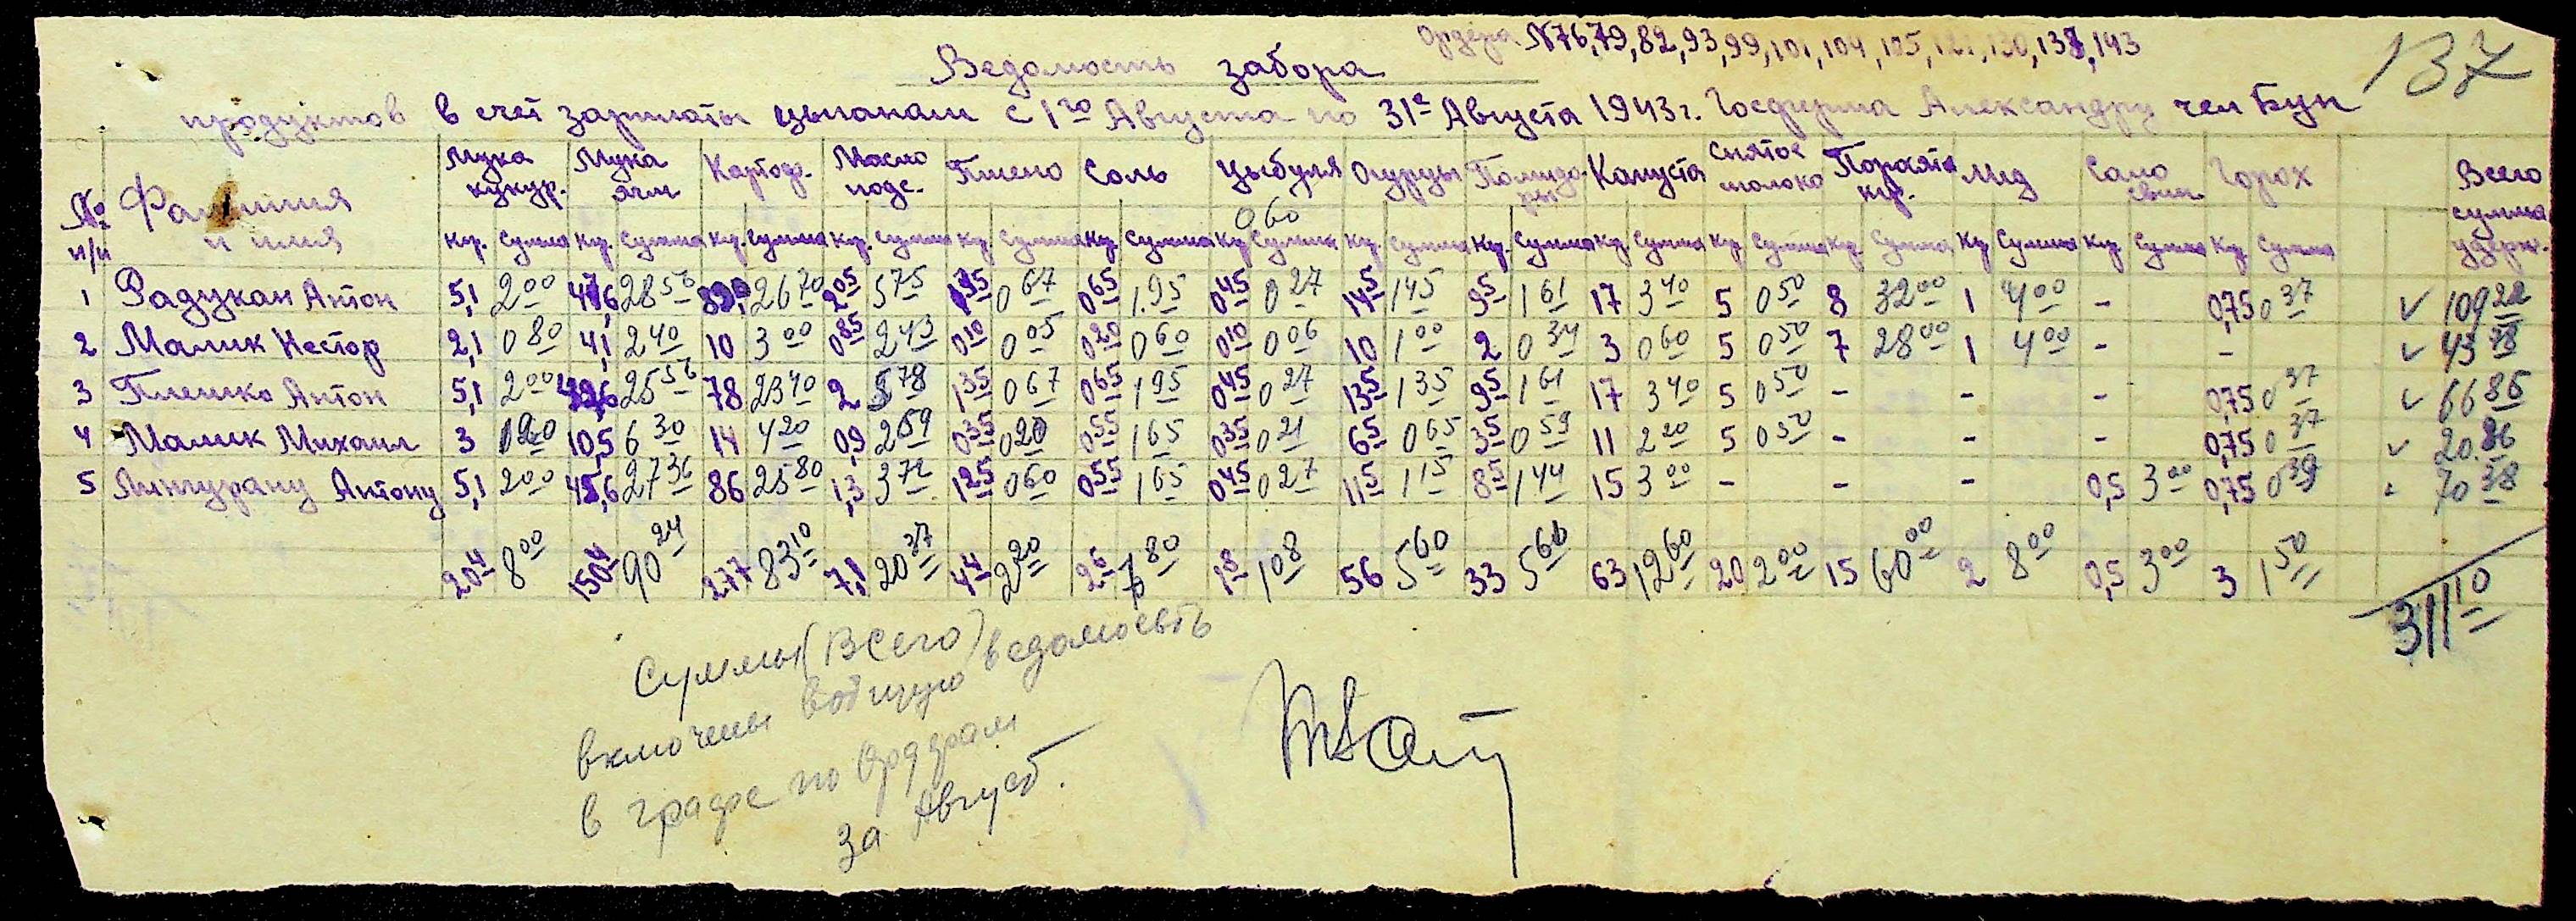 Ордера №76,79,82,93,99,101,104,105,121,130,138,143
137
Ведомость забора
продуктов в счет зарплаты цыганам с 1го Августа по 31е Августа 1943г. Госферма Александру чел Бун
№ п/п Фамилия и имя Мука кукур. Мука ячм Картоф. Масло подс. Пшено Соль Цыбуля Огурцы Помидоры Капуста Снятое молоко Поросята кг. Мёд Сало свин Горох Всего сумма удерж.
060
кг. сумма кг. сумма кг. сумма кг. сумма кг. сумма кг. сумма кг. сумма кг. сумма кг. сумма кг. сумма кг. сумма кг. сумма кг. сумма кг. сумма кг. сумма
1 Радукан Антон 5,1 2 00 47,6 28 56 89, 26 70 2 05 5 75 1 35 0 67 0 65 1.95 0 45 0 27 14 5 1 45 9 5 1 61 17 3 40 5 0 50 8 32 00 1 4 00 - 0,75 0 37 ✓ 109 22
2 Малик Нестор 2,1 0 80 4,1 2 40 10 3 00 0 85 2 43 0 10 0 05 0 20 0 60 0 10 0 06 10 1 00 2 0 34 3 0 60 5 0 50 7 28 00 1 4 00 - - ✓ 43 78
3 Плешко Антон 5,1 2 00 42,6 25 56 78 23 40 2 5 78 1 35 0 67 0 65 1 95 0 45 0 27 13 5 1 35 9 5 1 61 17 3 40 5 0 50 - - - 0,75 0 37 ✓ 66 86
4 Малик Михаил 3 1 20 10,5 6 30 14 4 20 0,9 2 69 0 35 0 20 0 55 1 65 0 35 0 21 6 5 0 65 3 5 0 59 11 2 20 5 0 50 - - - 0,75 0 37 ✓ 20.86
5 Лингурану Антону 5,1 2 00 45,6 27 36 86 25 80 1,3 3 72 1 25 0 60 0 55 1 65 0 45 0 27 11 5 1 15 8 5 1 44 15 3 00 - - - 0,5 3 00 0,75 0 39 70 38
20 4 8 00 150 4 90 24 277 83 10 7,1 20 37 4 4 2 20 2 6 7 80 1 8 1 08 56 5 60 33 5 60 63 12 60 20 2 00 15 60 00 2 8 00 0,5 3 00 3 1 50
311 10
Суммы (Всего)
включены в общую ведомость
в графе по Ордерам
за Август.